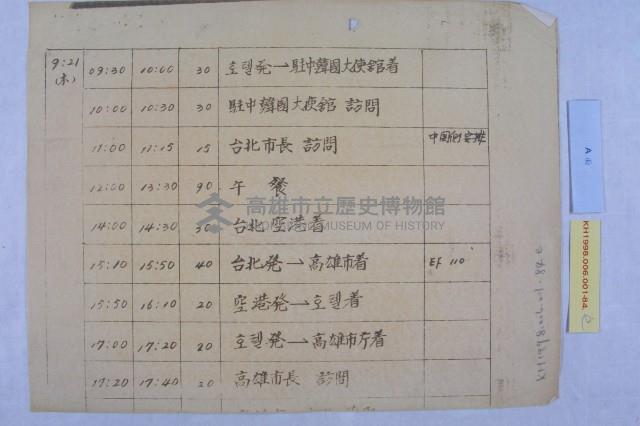 9:21 09:30 10:00 30 호텔発→駐中韓國大使舘着
(木)
10:00 10:30 30 駐中韓國大使舘 訪問
11:00 11:15 15 台北市長 訪問
12:00 13:30 90 午 餐
14:00 14:30 30 台北空港着
15:10 15:50 40 台北発→高雄市着 EF 110
15:50 16:10 20 空港発→호텔着
17:00 17:20 20 호텔発→高雄市庁着
17:20 17:40 20 高雄市長 訪問
高雄市立歷史博物館
KAOHSIUNG MUSEUM OF HISTORY
A
KH1998.006.001-84
KH1998.006.001-84